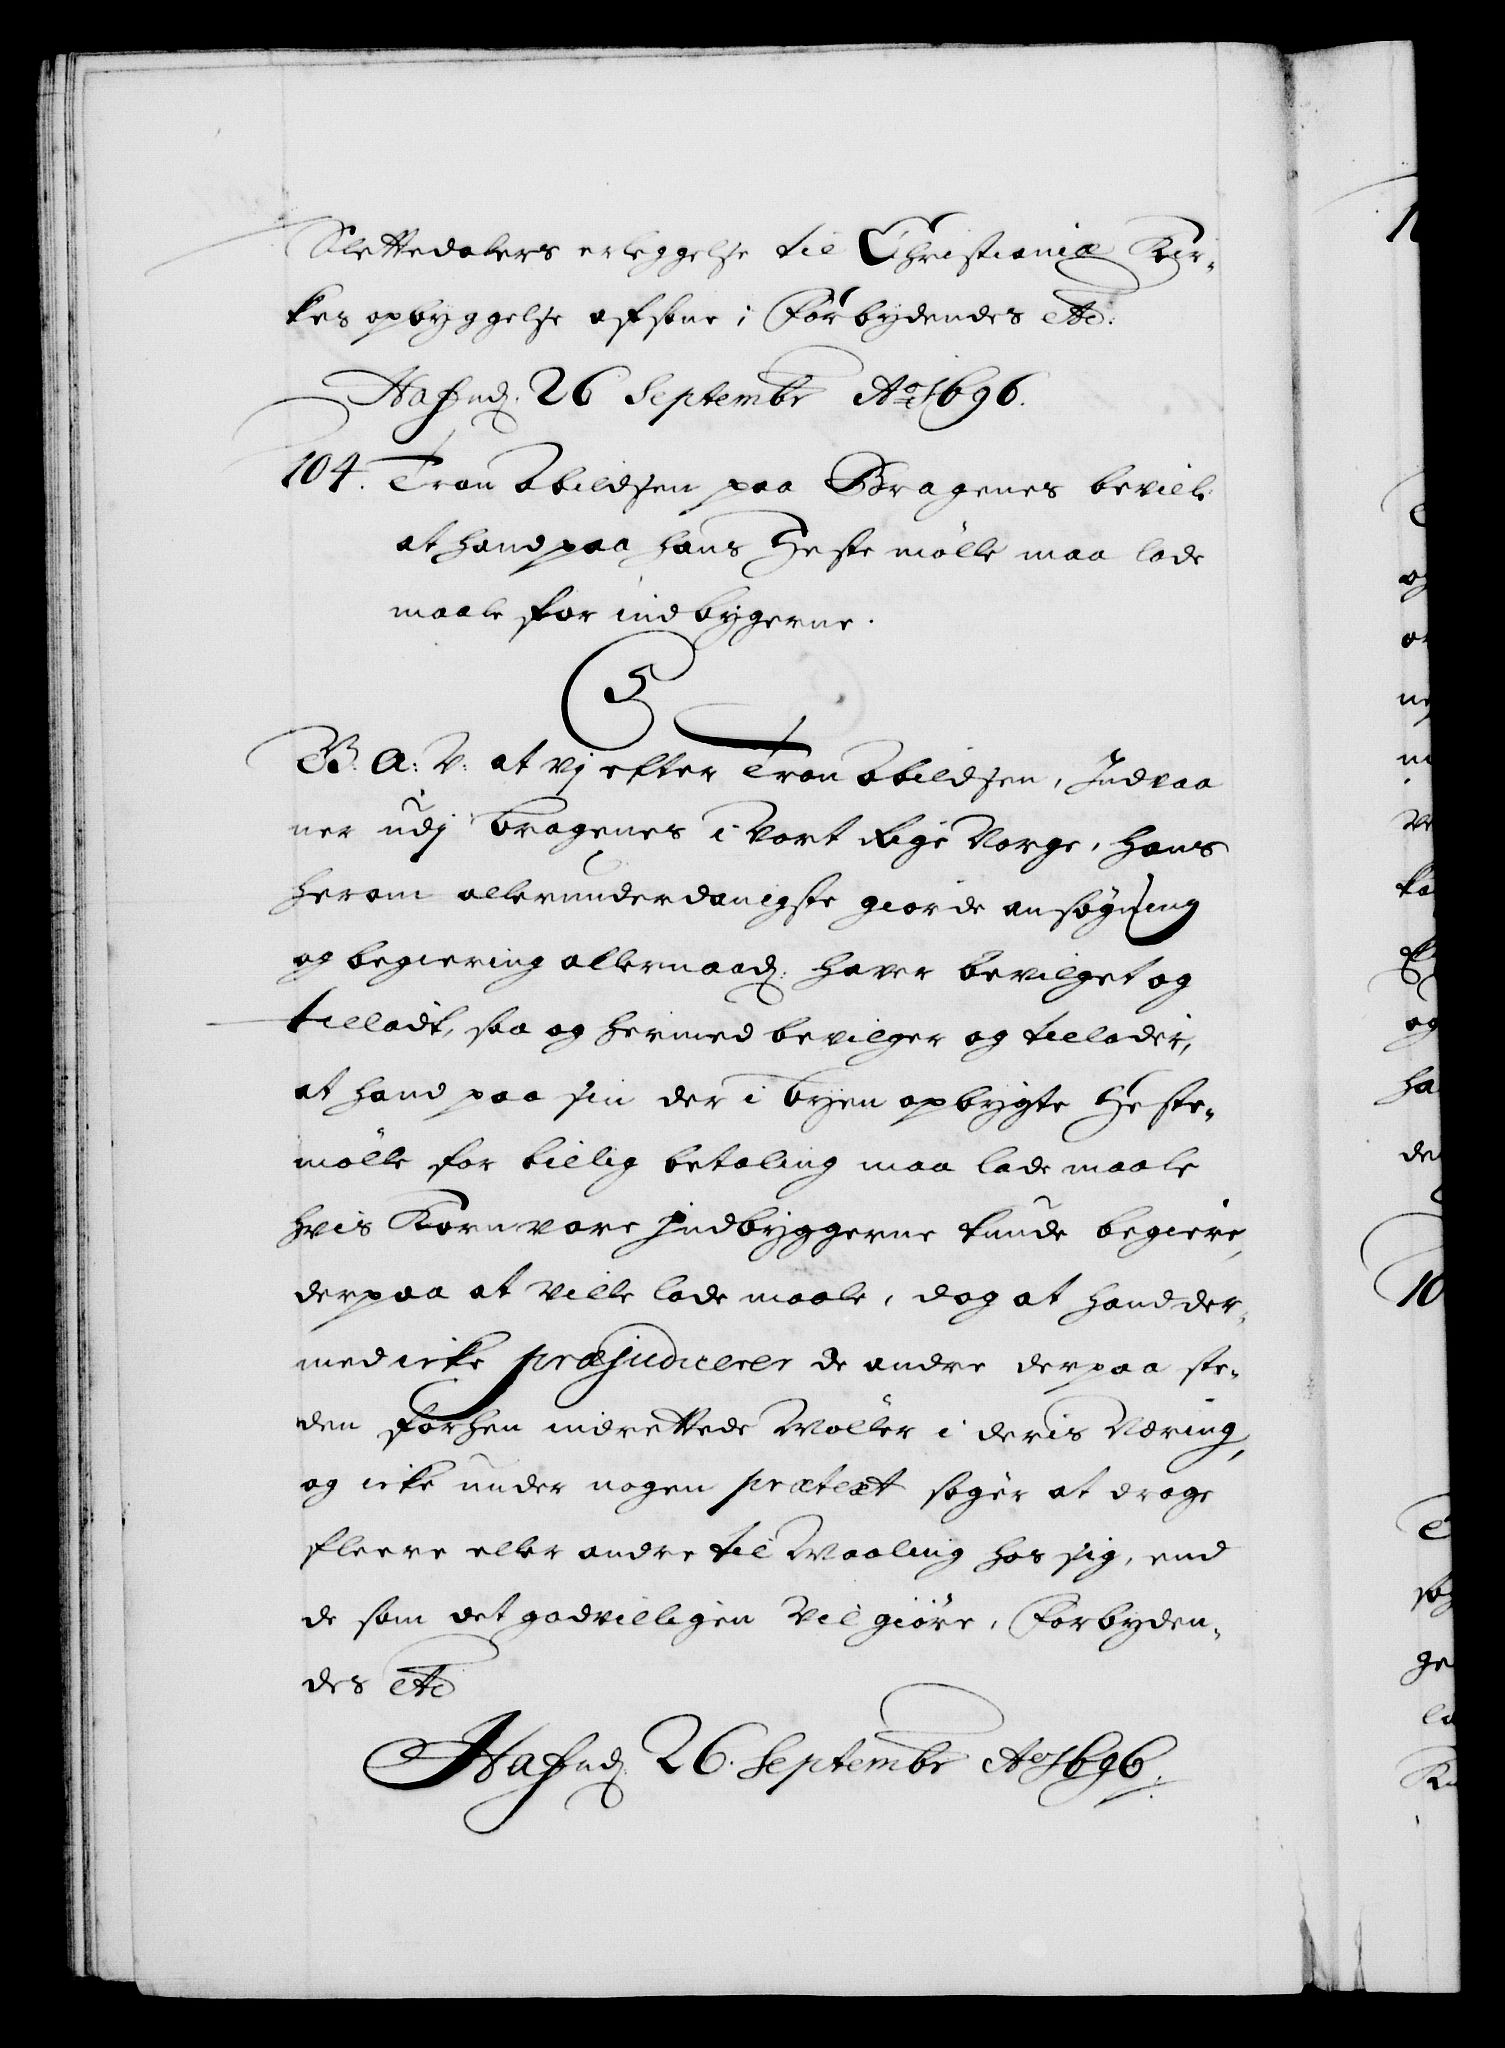 Slettedalers erleggelse til Christianiæ Kir-
kes opbyggelse afsone i Forbydendes etc:
Hafndj. 26 Septembr Ao 1696.
104. Tron Abildsen paa Bragenes bevill:
at hand paa hans Heste mölle maa lade
maale for indbygerne.
C5
B: A: V: at vj efter Tron Abildsen, Indvaa
ner udj Bragenes i Vort Rige Norge, hans
herom allerunderdanigste giorde ansøgning
og begiering allernaadj: haver bevilget og
tilladt, saa og hermed bevilger og tillader,
at hand paa sin der i byen opbygte Heste-
mölle for billig betaling maa lade maale
hvis Kornvare Indbyggerne kunde begiere,
derpaa at ville lade maale, dog at hand der-
med icke præjudicerer de andre derpaa ste-
den forhen indrettede Møller i deris Næring,
og icke under nogen prætext søger at drage
fleere eller andre til Maaling hos sig, end
de som det godvilligen vil giöre, Forbyden-
des etc
Hafndj. 26. Septembr Ao 1696.